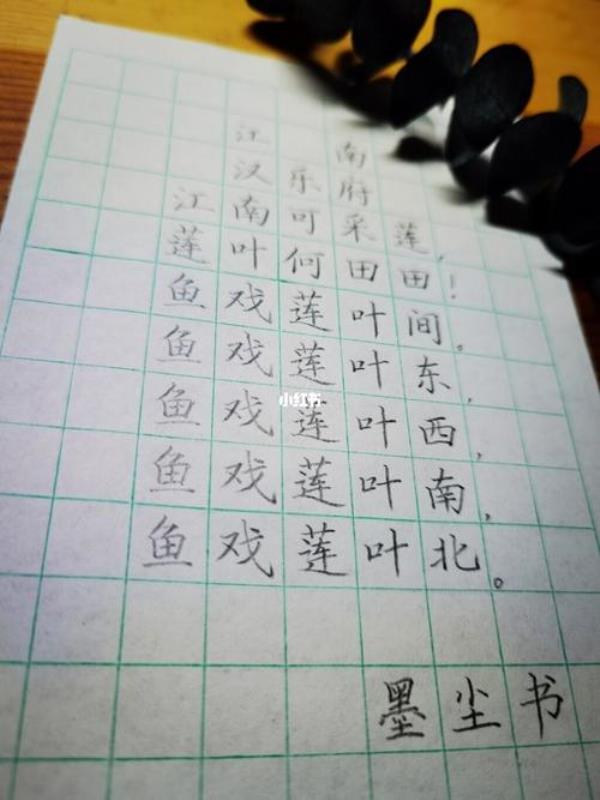 江 南
汉乐府
江南可采莲,
莲叶何田田!
鱼戏莲叶间。
鱼戏莲叶东,
小红书
鱼戏莲叶西,
鱼戏莲叶南,
鱼戏莲叶北。
墨尘书